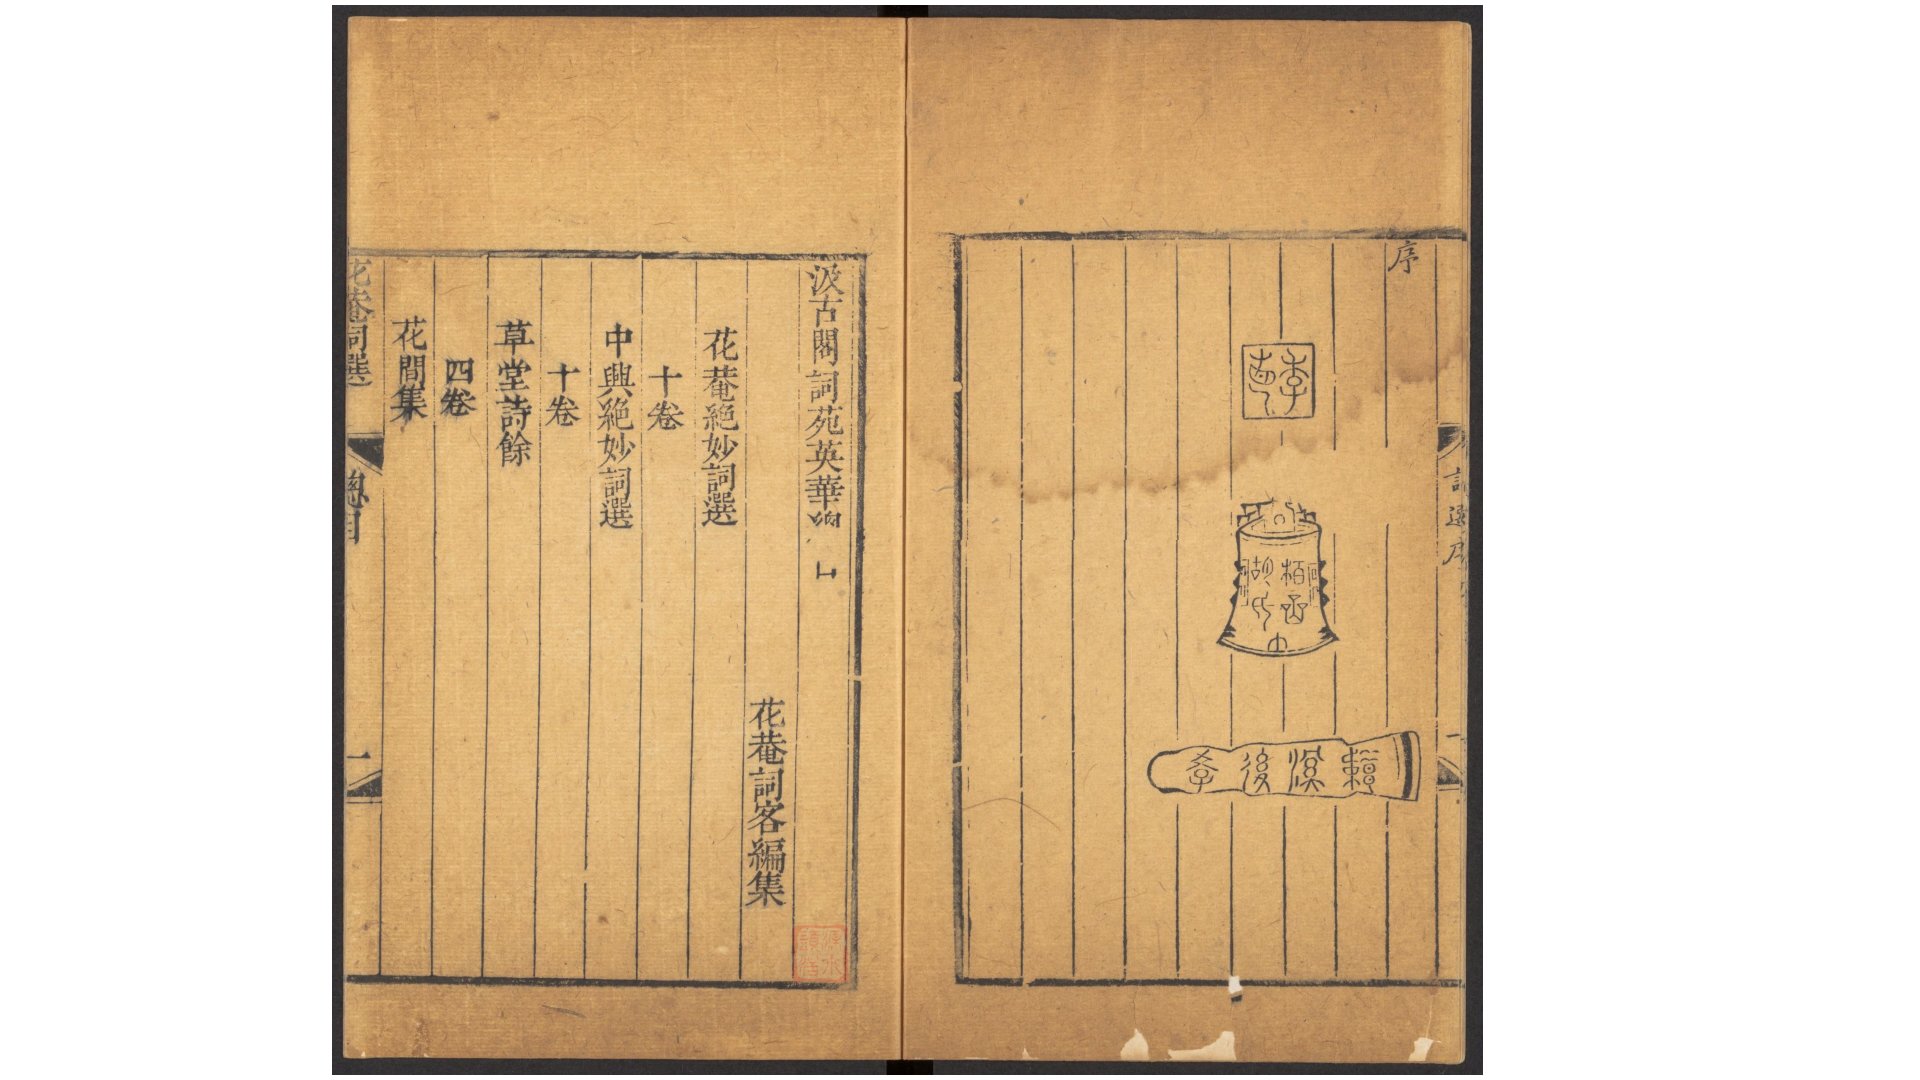 序
栢函
胡氏
汲古閣詞苑英華
花菴詞客編集
花菴絶妙詞選
十卷
中興絶妙詞選
十卷
草堂詩餘
四卷
花間集
花菴詞選
總目
一